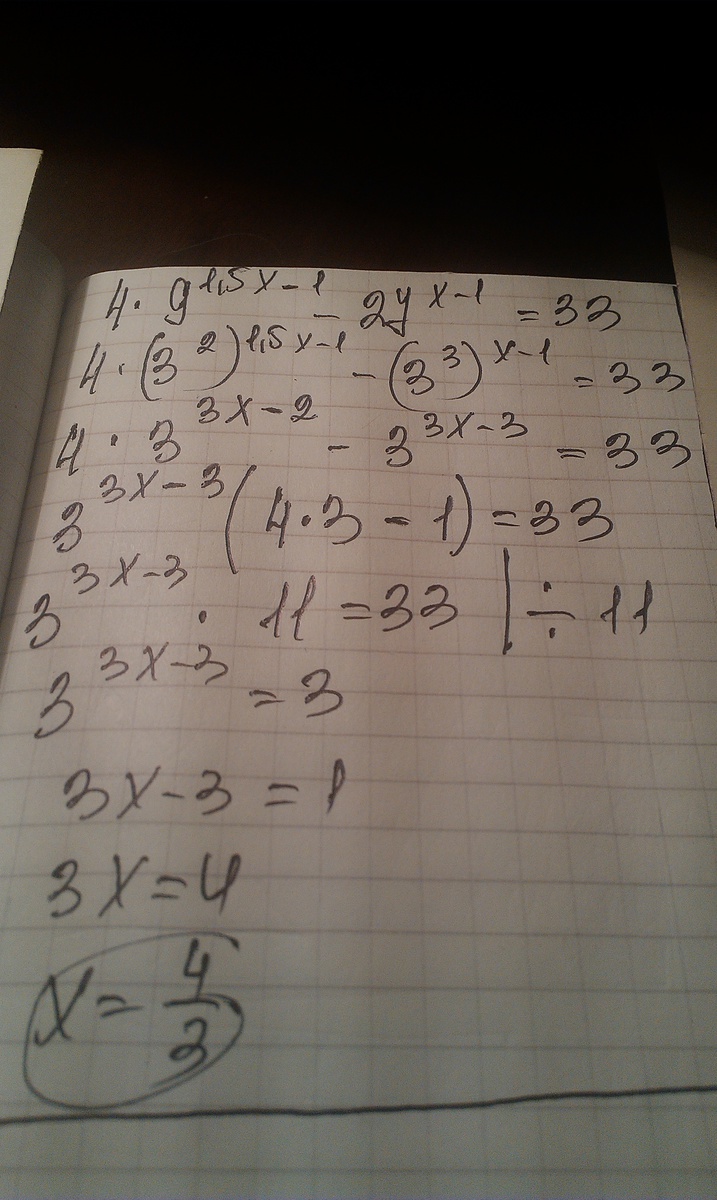 4 · 9^{1,5x-1} - 27^{x-1} = 33
4 · (3^2)^{1,5x-1} - (3^3)^{x-1} = 33
4 · 3^{3x-2} - 3^{3x-3} = 33
3^{3x-3} (4·3 - 1) = 33
3^{3x-3} · 11 = 33 | ÷ 11
3^{3x-3} = 3
3x - 3 = 1
3x = 4
x = 4/3